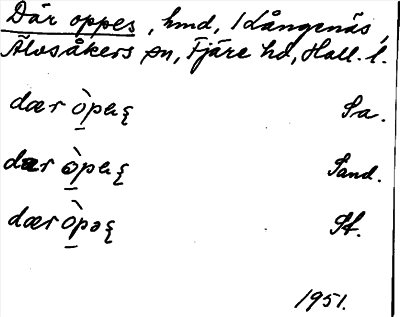 Där oppes, hmd, i Långenäs,
Älvsåkers sn, Fjäre hd, Hall. l.
dær òpeʂ Sa.
dær òpeʂ Sand.
dær òpəʂ Sf.
1951.